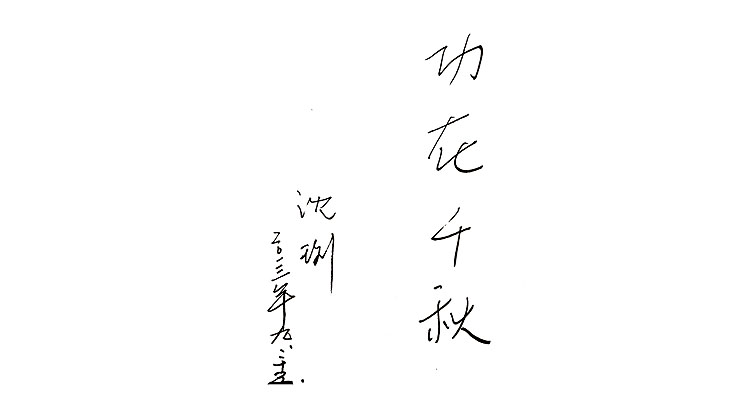 功在千秋
沈
二〇一三年九.